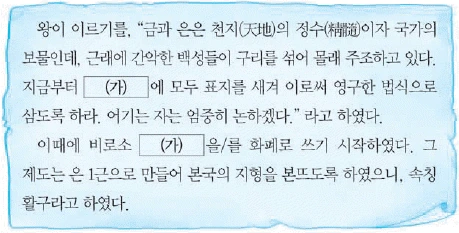 왕이 이르기를, “금과 은은 천지(天地)의 정수(精髓)이자 국가의
보물인데, 근래에 간악한 백성들이 구리를 섞어 몰래 주조하고 있다.
지금부터 (가) 에 모두 표지를 새겨 이로써 영구한 법식으로
삼도록 하라. 어기는 자는 엄중히 논하겠다.” 라고 하였다.
이때에 비로소 (가) 을/를 화폐로 쓰기 시작하였다. 그
제도는 은 1근으로 만들어 본국의 지형을 본뜨도록 하였으니, 속칭
활구라고 하였다.